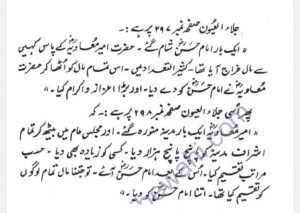 جلاء العیون صفحہ نمبر ۲۹۷ پر ہے :۔
" ایک بار امام حسنؓ شام گئے ۔ حضرت امیر معاویہؓ کے پاس کہیں
سے مال خراج آیا تھا کثیر التعداد میں ۔ اس تمام مال کو اٹھا کر حضرت
معاویہؓ نے امام حسنؓ کو دے دیں ۔ اور بڑا اعزاز و اکرام کیا ۔ "
پھر اسی جلاء العیون صفحہ نمبر ۲۹۸ پر ہے : کہ
" امیر معاویہؓ ایک بار مدینہ منورہ گئے ۔ اور مجلس عام میں بیٹھ کر تمام
اشراف مدینہ کو پانچ پانچ ہزار دیا ۔ کسی کو زیادہ بھی دیا ۔ حسب
مراتب تقسیم کیا ۔ اس کے بعد امام حسنؓ آئے ۔ تو جتنا مال تمام لوگوں
کو تقسیم کیا تھا ۔ اتنا امام حسنؓ کو دیا ۔ "